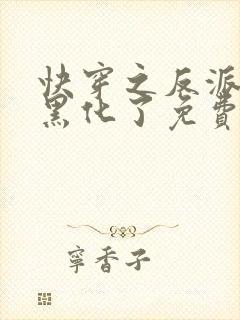 快穿之反派
黑化了免費
寧香子